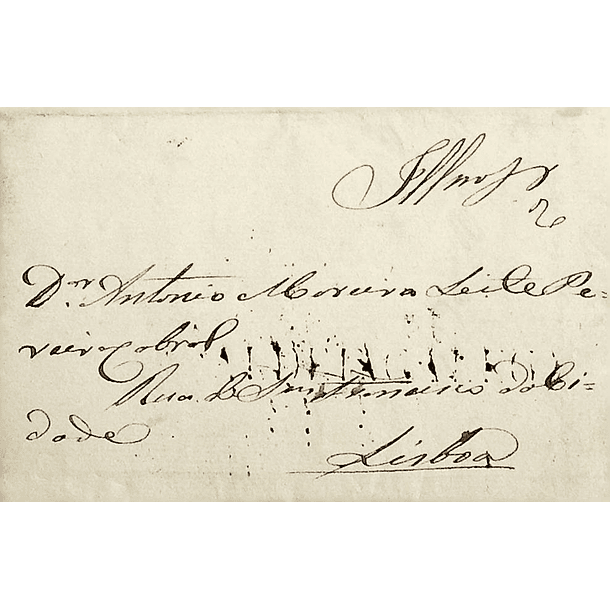 Illmo Sr
Dr Antonio Moreira Leite Pe=
reira Cabral
Rua de S. Francisco da Ci=
dade
Lisboa